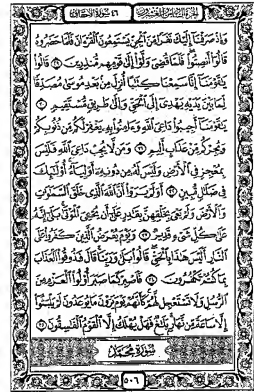 الجزء السادس والعشرون ٤٦ سورة الأحقاف
وَإِذْ صَرَفْنَآ إِلَيْكَ نَفَرًا مِّنَ ٱلْجِنِّ يَسْتَمِعُونَ ٱلْقُرْءَانَ فَلَمَّا حَضَرُوهُ
قَالُوٓا۟ أَنصِتُوا۟ فَلَمَّا قُضِىَ وَلَّوْا۟ إِلَىٰ قَوْمِهِم مُّنذِرِينَ ٢٩ قَالُوا۟
يَٰقَوْمَنَآ إِنَّا سَمِعْنَا كِتَٰبًا أُنزِلَ مِنۢ بَعْدِ مُوسَىٰ مُصَدِّقًا
لِّمَا بَيْنَ يَدَيْهِ يَهْدِىٓ إِلَى ٱلْحَقِّ وَإِلَىٰ طَرِيقٍ مُّسْتَقِيمٍ ٣٠
يَٰقَوْمَنَآ أَجِيبُوا۟ دَاعِىَ ٱللَّهِ وَءَامِنُوا۟ بِهِۦ يَغْفِرْ لَكُم مِّن ذُنُوبِكُمْ
وَيُجِرْكُم مِّنْ عَذَابٍ أَلِيمٍ ٣١ وَمَن لَّا يُجِبْ دَاعِىَ ٱللَّهِ فَلَيْسَ
بِمُعْجِزٍ فِى ٱلْأَرْضِ وَلَيْسَ لَهُۥ مِن دُونِهِۦٓ أَوْلِيَآءُ أُو۟لَٰٓئِكَ
فِى ضَلَٰلٍ مُّبِينٍ ٣٢ أَوَلَمْ يَرَوْا۟ أَنَّ ٱللَّهَ ٱلَّذِى خَلَقَ ٱلسَّمَٰوَٰتِ
وَٱلْأَرْضَ وَلَمْ يَعْىَ بِخَلْقِهِنَّ بِقَٰدِرٍ عَلَىٰٓ أَن يُحْۦِىَ ٱلْمَوْتَىٰ بَلَىٰٓ إِنَّهُۥ
عَلَىٰ كُلِّ شَىْءٍ قَدِيرٌ ٣٣ وَيَوْمَ يُعْرَضُ ٱلَّذِينَ كَفَرُوا۟ عَلَى
ٱلنَّارِ أَلَيْسَ هَٰذَا بِٱلْحَقِّ قَالُوا۟ بَلَىٰ وَرَبِّنَا قَالَ فَذُوقُوا۟ ٱلْعَذَابَ
بِمَا كُنتُمْ تَكْفُرُونَ ٣٤ فَٱصْبِرْ كَمَا صَبَرَ أُو۟لُوا۟ ٱلْعَزْمِ مِنَ
ٱلرُّسُلِ وَلَا تَسْتَعْجِل لَّهُمْ كَأَنَّهُمْ يَوْمَ يَرَوْنَ مَا يُوعَدُونَ لَمْ يَلْبَثُوٓا۟
إِلَّا سَاعَةً مِّن نَّهَارٍۭ بَلَٰغٌ فَهَلْ يُهْلَكُ إِلَّا ٱلْقَوْمُ ٱلْفَٰسِقُونَ ٣٥
سُورَةُ مُحَمَّد
٥٠٦